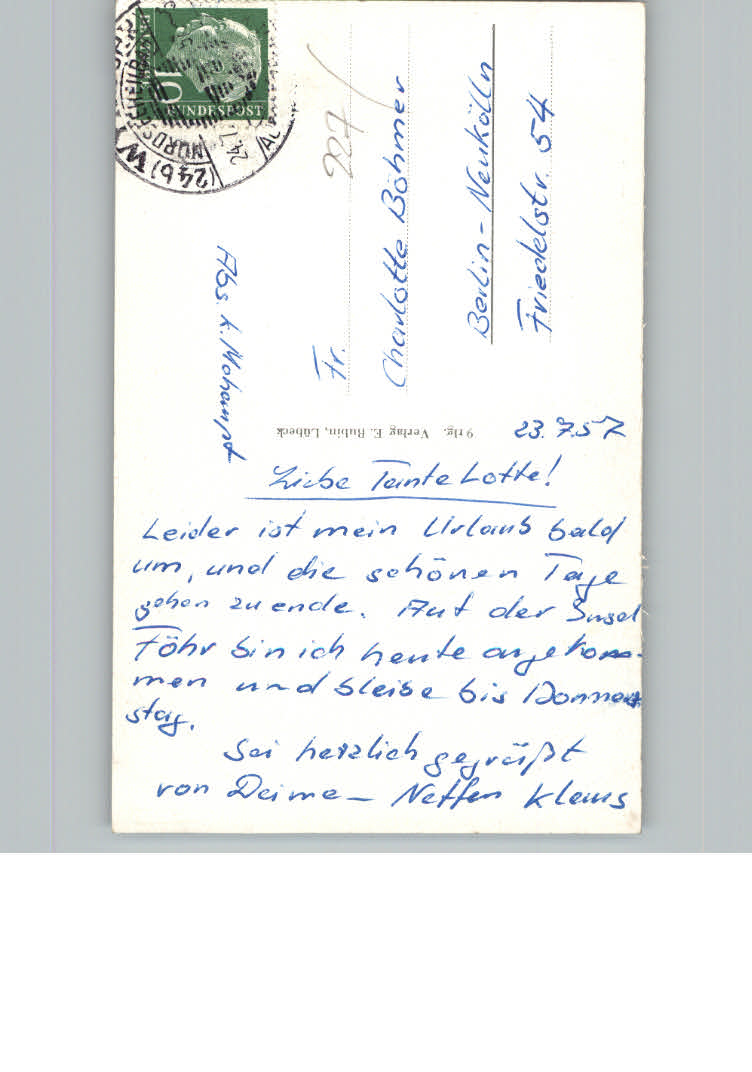 23.7.57
Liebe Tante Lotte!
Leider ist mein Urlaub bald
um, und die schönen Tage
gehen zuende. Auf der Insel
Föhr bin ich heute angekom-
men und bleibe bis Donners-
stag.
Sei herzlich gegrüßt
von Deinem Neffen Klaus
Abs. K.
Fr.
Charlotte Böhmer
Berlin-Neukölln
Friedelstr. 54
227
9 rlg. Verlag E. Rubin, Lübeck
10
BUNDESPOST
(24b) W
NORDSEEHEILBAD
24.7.